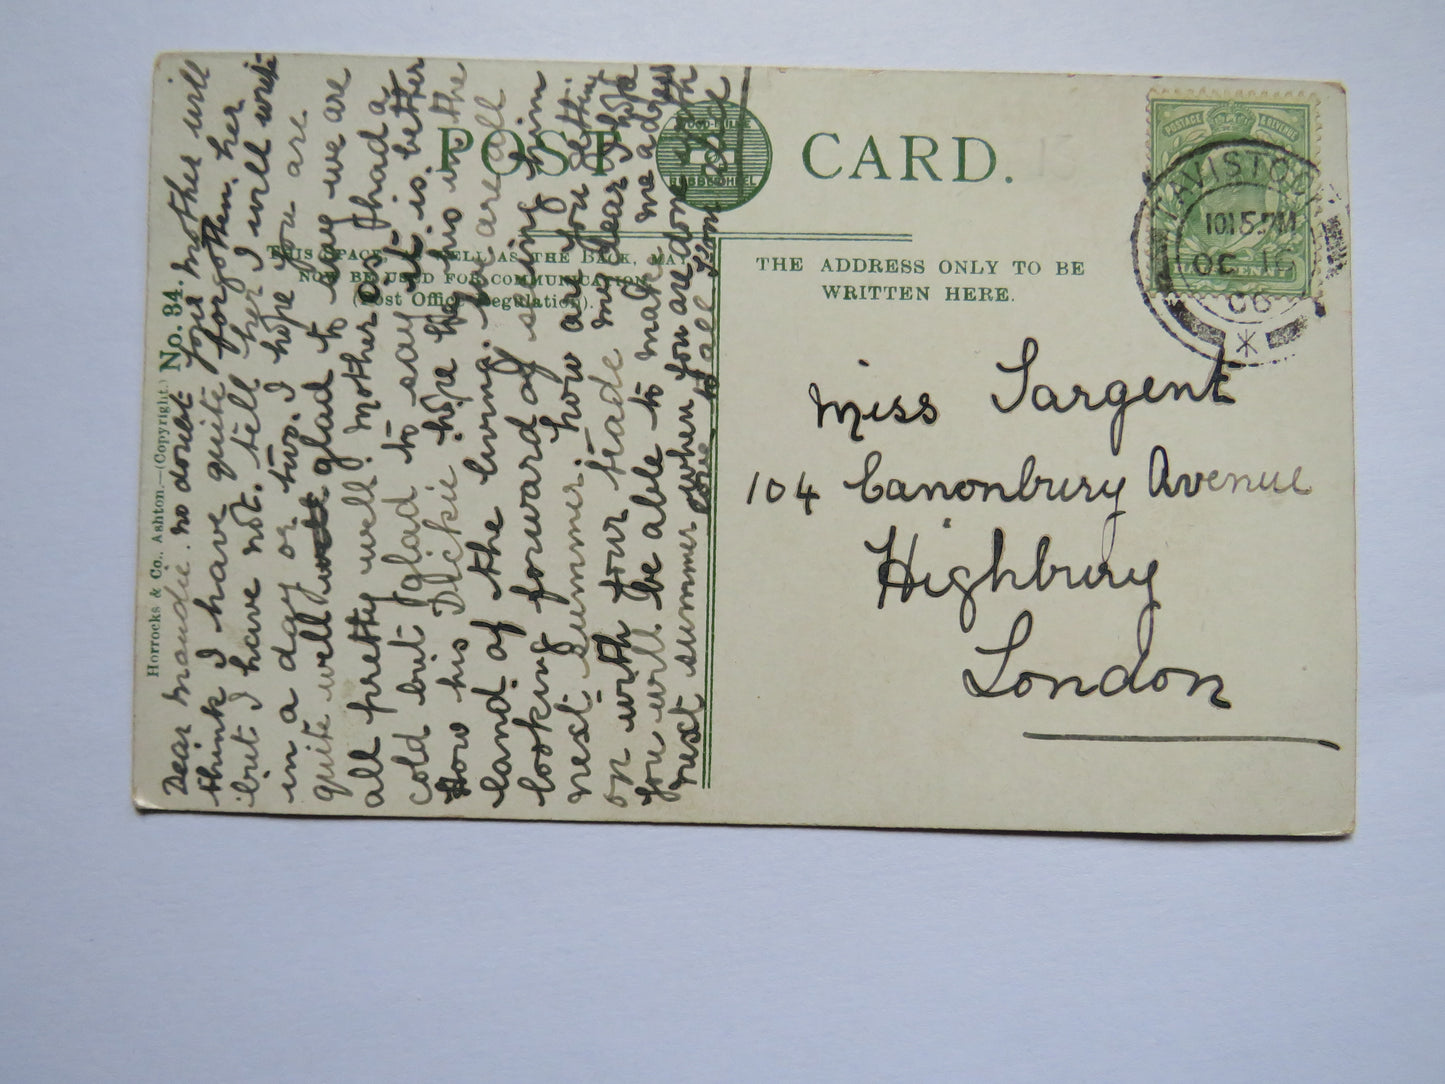 POST CARD.
THIS SPACE, WELL AS THE BACK, MA
NOW BE USED FOR COMMUNICATION
(Post Office Regulation).
THE ADDRESS ONLY TO BE
WRITTEN HERE.
Horrocks & Co., Ashton.—(Copyright.) No. 34.
TAVISTOCK
1015PM
OC 16
06
POSTAGE & REVENUE
Miss Sargent
104 Canonbury Avenue
Highbury
London
Dear Maudie. no doubt your mother will
think I have quite forgotten her
but I have not. tell her I will write
in a day or two. I hope you are
quite well glad to say we are
all pretty well Mother as had a
cold but glad to say it is better
How his Dickie hope he his in the
land of the living. we are all
looking forward of seing him
next summer. how are you getting
on with your trade my dear I hope
you will be able to make me a dress
next summer when you are done with
love to all from